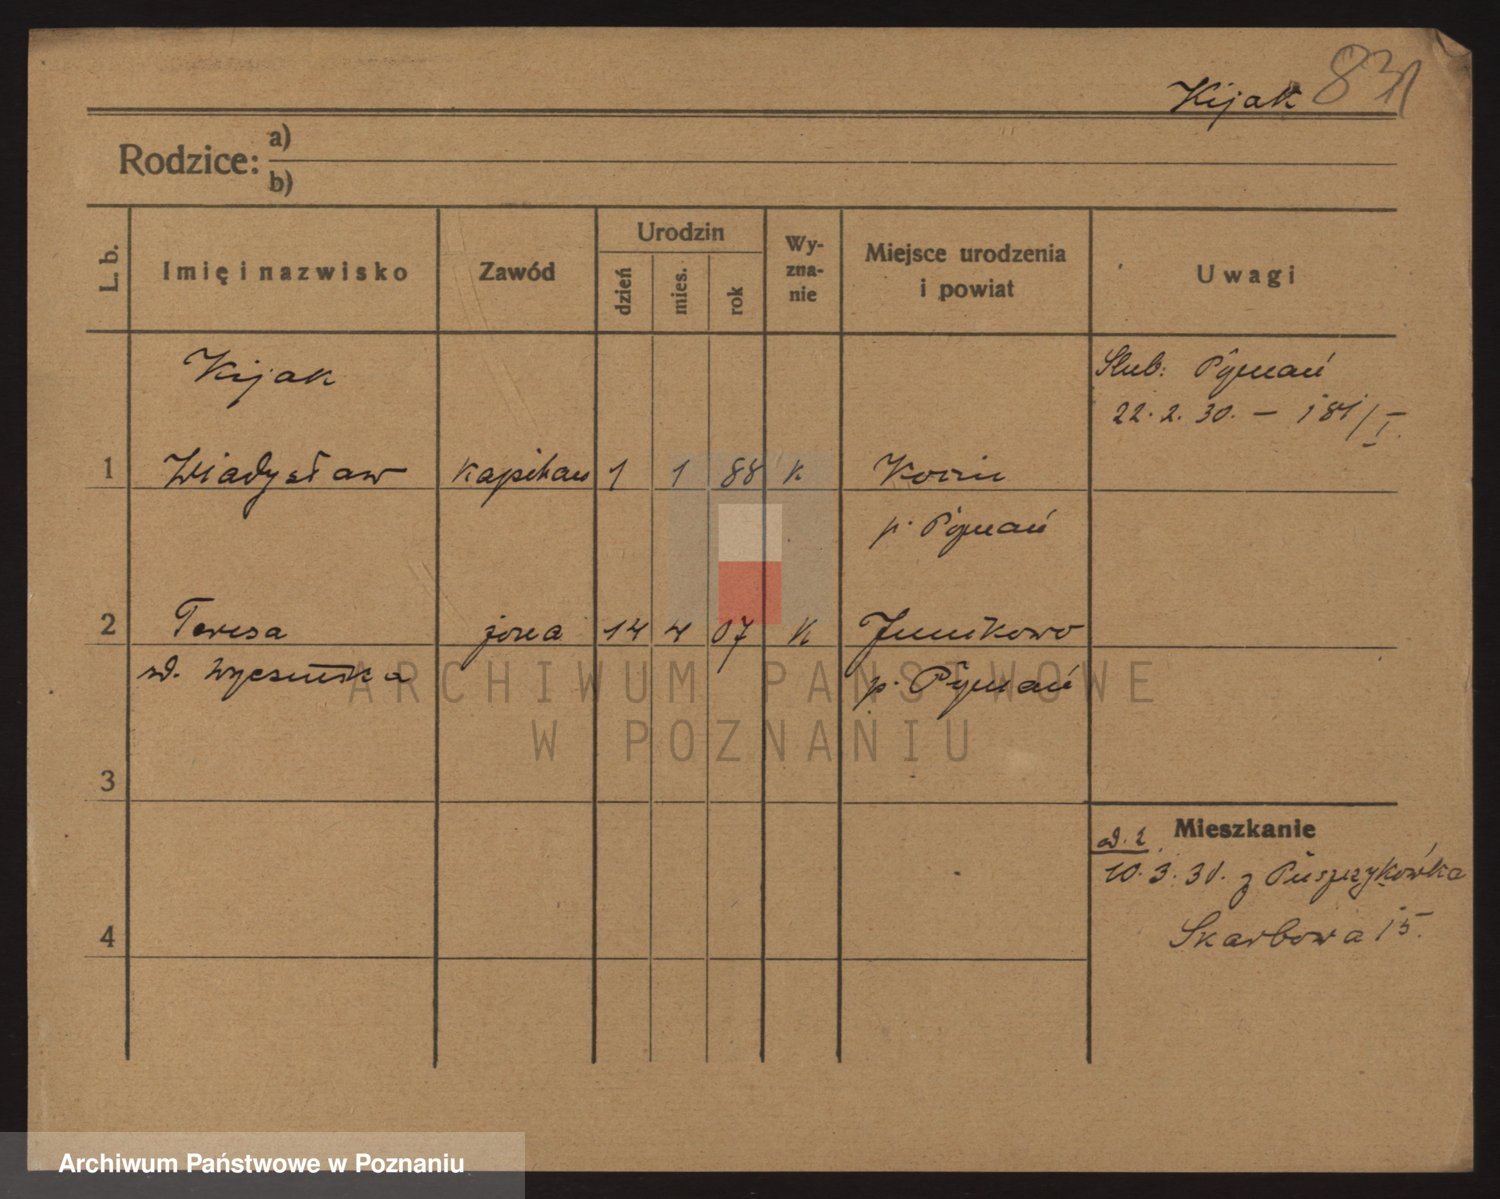 Kijak 831
Rodzice: a)
b)
L. b. Imię i nazwisko Zawód Urodzin dzień mies. rok Wy-zna-nie Miejsce urodzenia i powiat Uwagi
Kijak Ślub: Poznań
22. 2. 30. — 181/I.
1 Władysław kapitan 1 1 88 k
p. Poznań
2 Teresa żona 14 4 07 k Junikowo
p. Poznań
ARCHIWUM PAŃSTWOWE
W POZNANIU
3
Mieszkanie
10. 3. 31. z Puszczykówka
Skarbowa 15.
4
Archiwum Państwowe w Poznaniu